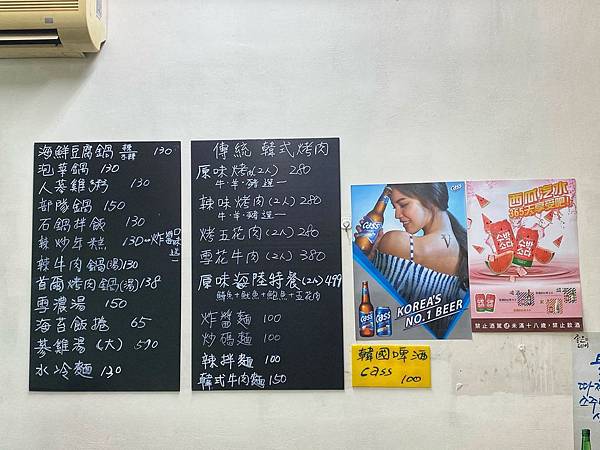 海鮮豆腐鍋 辣 不辣 130
泡菜鍋 130
人蔘雞粥 130
部隊鍋 150
石鍋拌飯 130
辣炒年糕 130
辣牛肉鍋(湯)130
首爾烤肉鍋(湯)138
雪濃湯 150
海苔飯捲 65
蔘雞湯(大) 590
水冷麵 130
傳統 韓式烤肉
原味烤肉(2人) 280
牛·羊·豬 選一
辣味烤肉(2人) 280
牛·羊·豬選一
烤五花肉(2人) 280
雪花牛肉(2人) 380
原味海陸特餐(2人)499
鯛魚+魷魚+鮑魚+五花肉
炸醬麵 100
炒碼麵 100
辣拌麵 100
韓式牛肉麵 150
cass
KOREA'S
NO.1 BEER
韓國啤酒
Cass
100
西瓜汽水
365天享受吧!
수박
소다
수박
소다
禁止酒駕 未滿十八歲，禁止飲酒